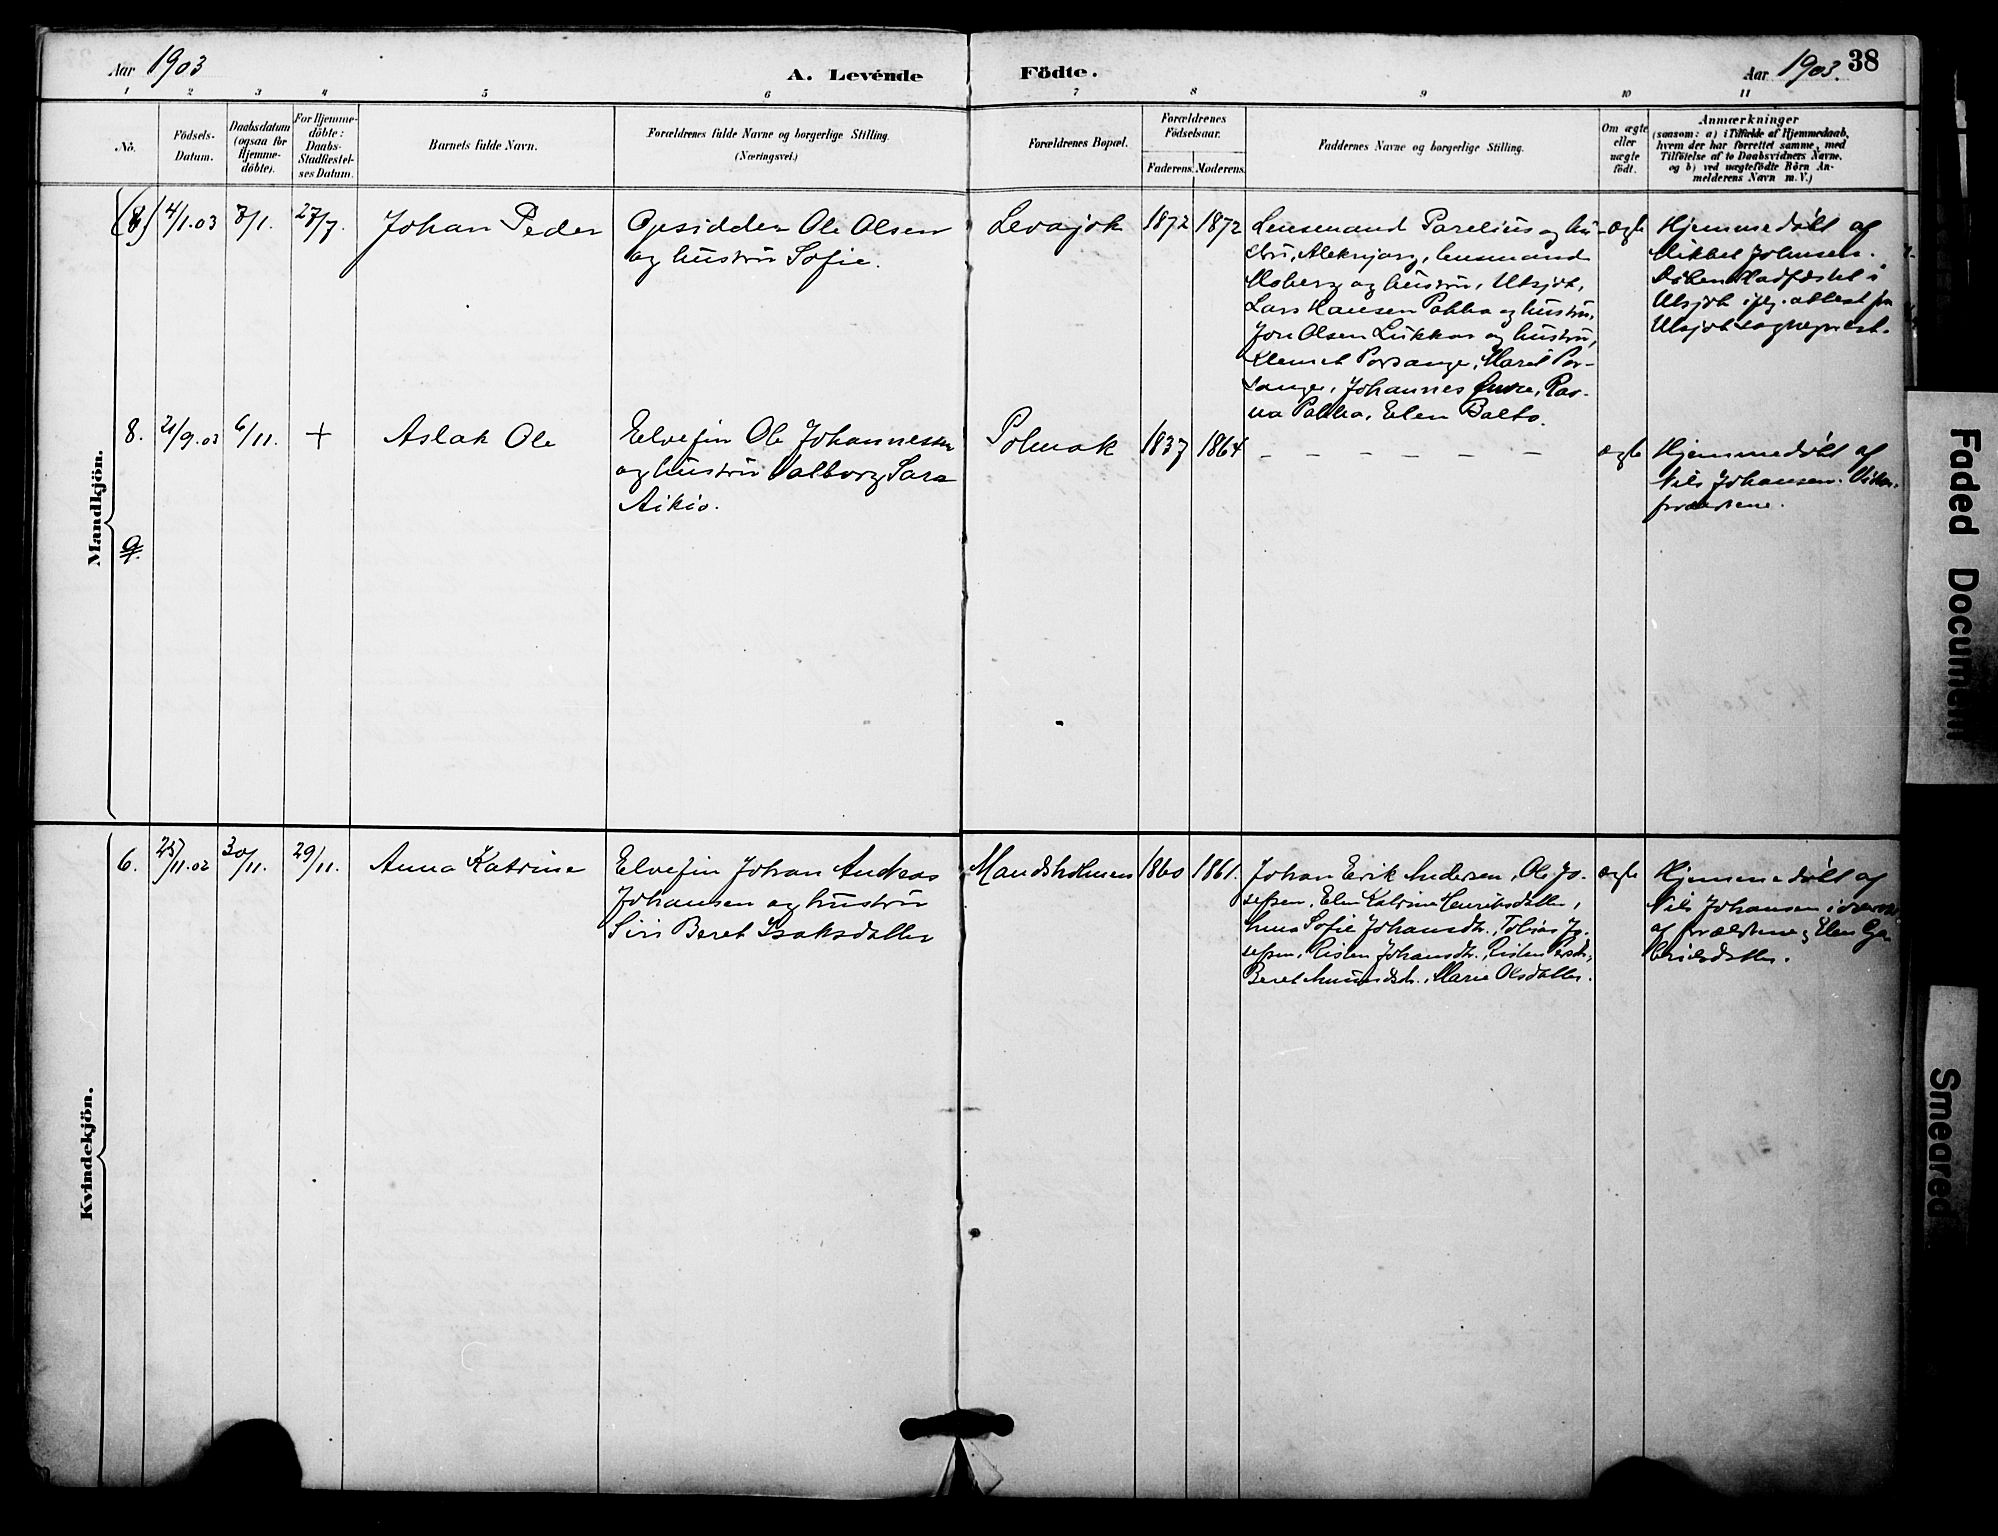 Aar 1903
A. Levende
Födte.
Aar 1903. 38
1 2 3 4 5 6 7 8 9 10 11
No.
Födsels-
Datum.
Daabsdatum
(ogsaa for
Hjemme-
döbte).
For Hjemme-
döbte:
Daabs-
Stadfæstel-
ses Datum.
Barnets fulde Navn.
Forældrenes fulde Navne og borgerlige Stilling.
(Næringsvei.)
Forældrenes Bopæl.
Forældrenes
Födselsaar.
Faderens. Moderens.
Faddernes Navne og borgerlige Stilling.
Om ægte
eller
uægte
födt.
Anmærkninger
(saasom: a) i Tilfælde af Hjemmedaab,
hvem der har forrettet samme, med
Tilföielse af to Daabsvidners Navne,
og b) ved uægtefödte Börn An-
melderens Navn m. V.)
Mandkjön.
(8) 4/1.03 7/1. 27/7. Johan Peder
Opsidder Ole Olsen
og hustru Sofie.
Levajok 1872 1872
Lensmand Parelius og hu-
stru, Aleknjarg, lensmand
Moberg og hustru, Utsjok,
Lars Hansen Pokka og hustru,
Jon Olsen Lukkar og hustru,
Klemet Porsanger, Marit Por-
sanger, Johannes
Pokka, Elen Balto.
ægte
Hjemmedøbt af
Mikkel Johnsen.
Daaben stadfæstet i
Utsjok ifg. attest fra
Utsjok sogneprest.
8. 21/9.03 6/11. + Aslak Ole
Elvefin Ole Johannessen
og hustru Valborg Sara
Aikio.
Polmak 1837 1864 – – – – – –
ægte
Hjemmedøbt af
Nils Johansen.
forældrene.
9.
Kvindekjön.
6. 25/11.02 30/11. 29/11. Anna Katrine
Elvefin Johan Andreas
Johansen og hustru
Siri Beret Isaksdatter
Mandsholmen 1860 1861.
Johan Erik Andersen, Ole Jo-
sefsen, Elen Katrine Henriksdatter,
Anna Sofie Johansdtr., Tobias Jo-
sefsen, Risten Johansdtr., Risten Persdtr,
Beret Amundsdtr., Marie Olsdatter.
ægte
Hjemmedøbt af
Nils Johansen i overvær
af forældrene og Elen Ga-
brielsdatter.
Faded Document
Smeared